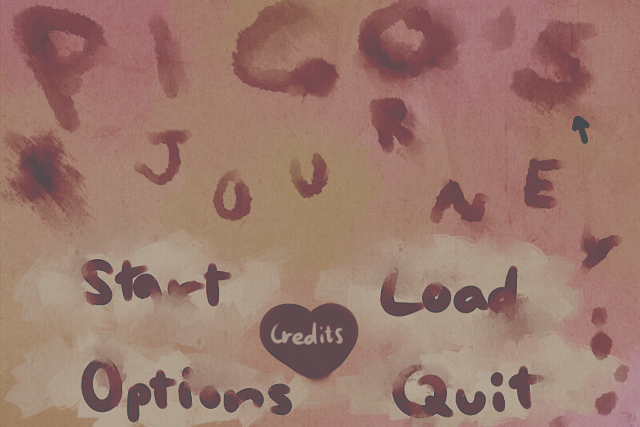 PICO'S
JOURNEY
Start
Load
Credits
Options
Quit